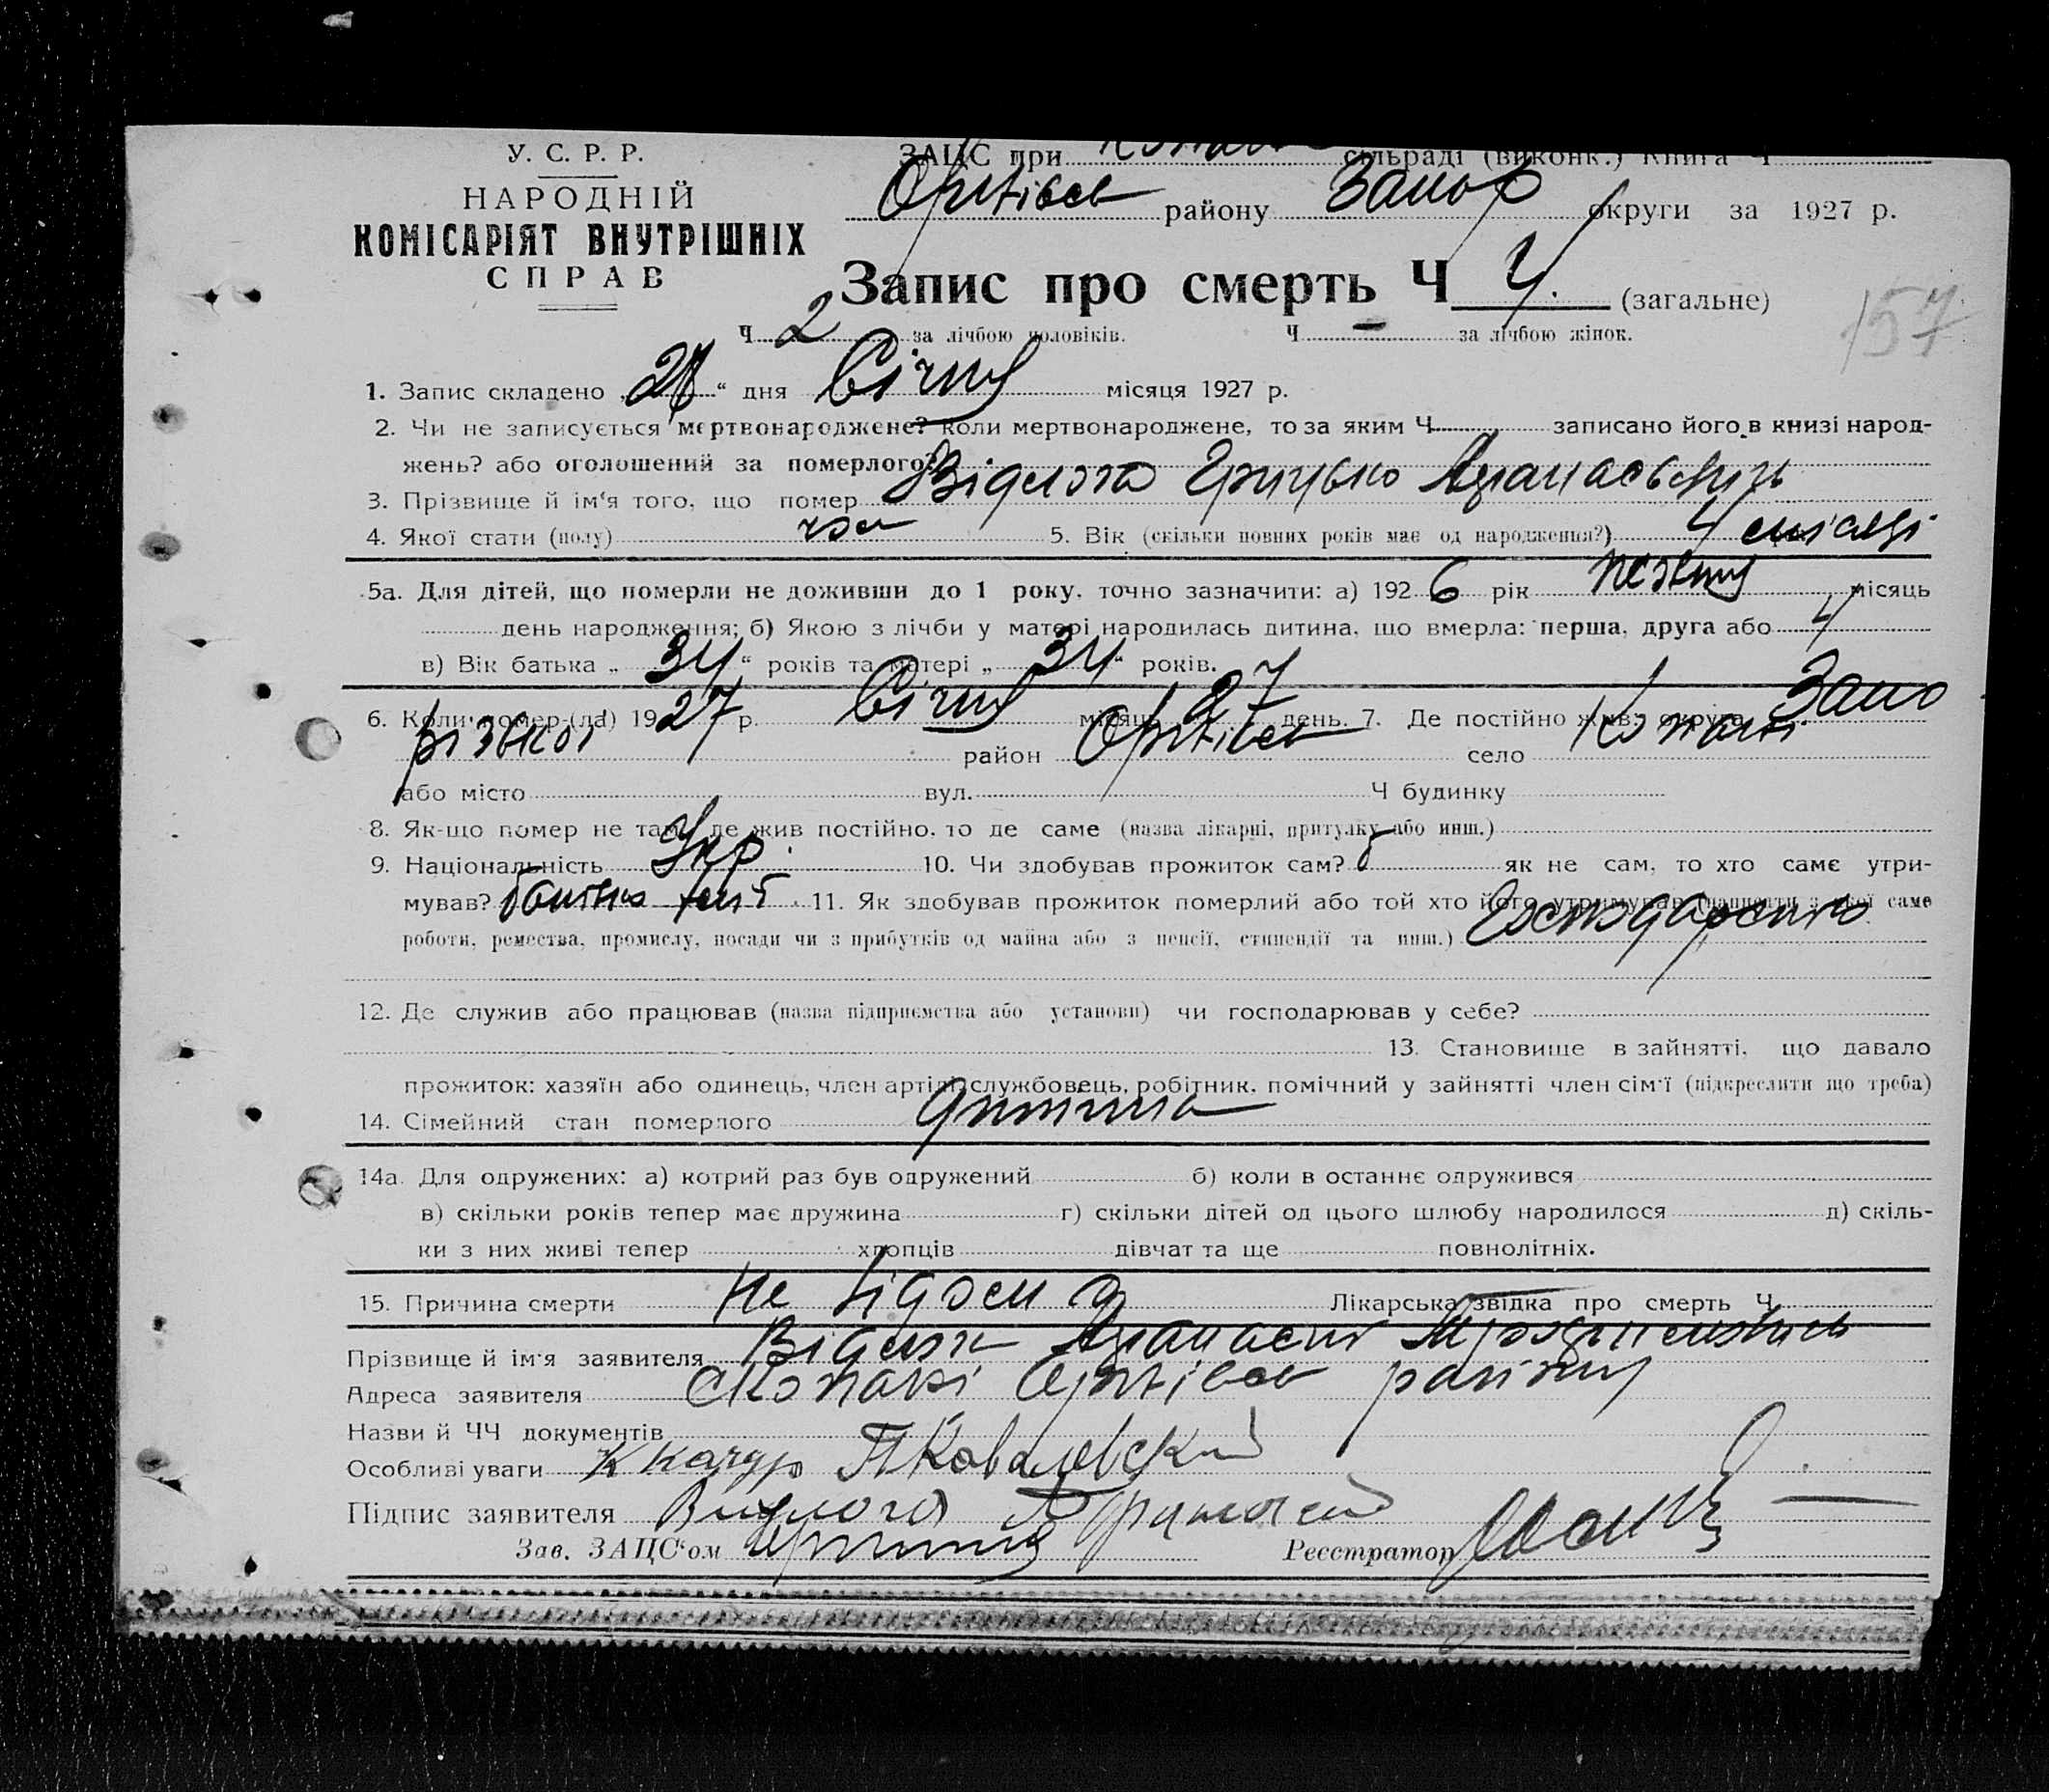 У. С. Р. Р.
НАРОДНІЙ
КОМІСАРІЯТ ВНУТРІШНІХ
СПРАВ
ЗАЦС при сільраді (виконк.) Книга Ч
району Запор округи за 1927 р.
Запис про смерть Ч 4. (загальне)
157
Ч 2 за лічбою чоловіків. Ч — за лічбою жінок.
1. Запис складено „ “ дня Січня місяця 1927 р.
2. Чи не записується мертвонароджене? коли мертвонароджене, то за яким Ч записано його в книзі народ-
жень? або оголошений за померлого?
3. Прізвище й ім‘я того, що помер Грицько Афанасьевич
4. Якої стати (полу) чол 5. Вік (скільки повних років має од народження?) 4 місяці
5а. Для дітей, що померли не доживши до 1 року, точно зазначити: а) 192 6 рік місяць
день народження; б) Якою з лічби у матері народилась дитина, що вмерла: перша, друга або 4
в) Вік батька „ 34 “ років та матері „ 34 “ років.
6. Коли помер-(ла) 19 27 р. Січня місяць 27 день. 7. Де постійно жив: округа Запо
різької район село
або місто вул. Ч будинку
8. Як-що помер не там, де жив постійно, то де саме (назва лікарні, притулку або инш.)
9. Національність Укр. 10. Чи здобував прожиток сам? як не сам, то хто саме утри-
мував? батько 11. Як здобував прожиток померлий або той хто його утримував (написати з якої саме
роботи, ремества, промислу, посади чи з прибутків од майна або з пенсії, стипендії та инш.)
12. Де служив або працював (назва підприємства або установи) чи господарював у себе?
13. Становище в зайнятті, що давало
прожиток: хазяїн або одинець, член артілі, службовець, робітник, помічний у зайнятті член сім‘ї (підкреслити що треба)
14. Сімейний стан померлого дитина
14а. Для одружених: а) котрий раз був одружений б) коли в останнє одружився
в) скільки років тепер має дружина г) скільки дітей од цього шлюбу народилося д) скіль-
ки з них живі тепер хлопців дівчат та ще повнолітніх.
15. Причина смерти Не відома Лікарська звідка про смерть Ч
Прізвище й ім‘я заявителя
Адреса заявителя району
Назви й ЧЧ документів
Особливі уваги Ковалевский
Підпис заявителя
Зав. ЗАЦС“ом Реєстратор